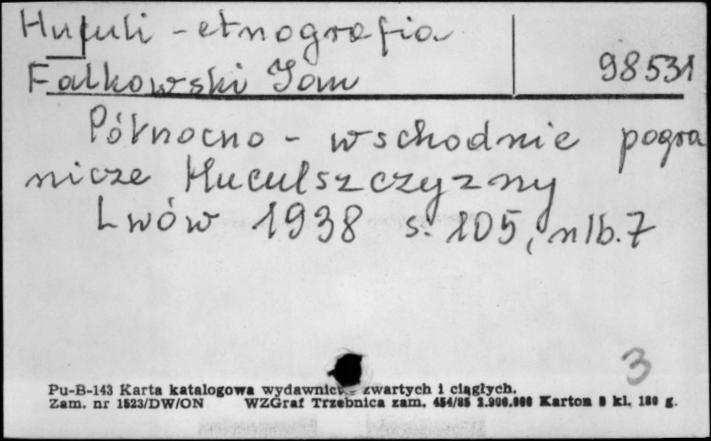 Huculi - etnografia
Falkowski Jan 98531
Północno - wschodnie pogra
nicze Huculszczyzny
Lwów 1938 s. 105, nlb. 7
3
Pu-B-143 Karta katalogowa wydawnictw zwartych i ciągłych.
Zam. nr 1523/DW/ON WZGraf Trzebnica zam. 454/85 2.900.000 Karton 8 kl. 180 g.